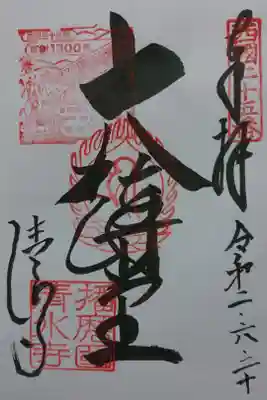 西國二十五番
奉拝
令和二・六・二十
大講堂
1300
清水寺
播磨國清水寺